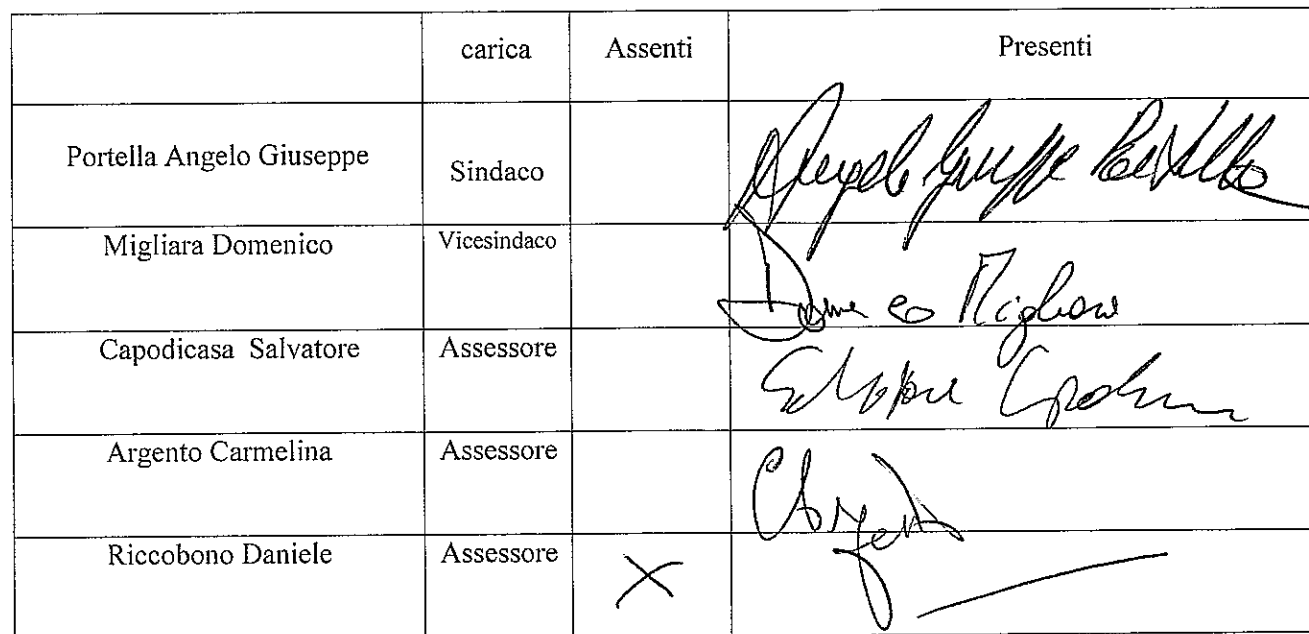 carica Assenti Presenti
Portella Angelo Giuseppe Sindaco Angelo Giuseppe Portella
Migliara Domenico Vicesindaco Domenico
Capodicasa Salvatore Assessore Salvatore
Argento Carmelina Assessore
Riccobono Daniele Assessore X